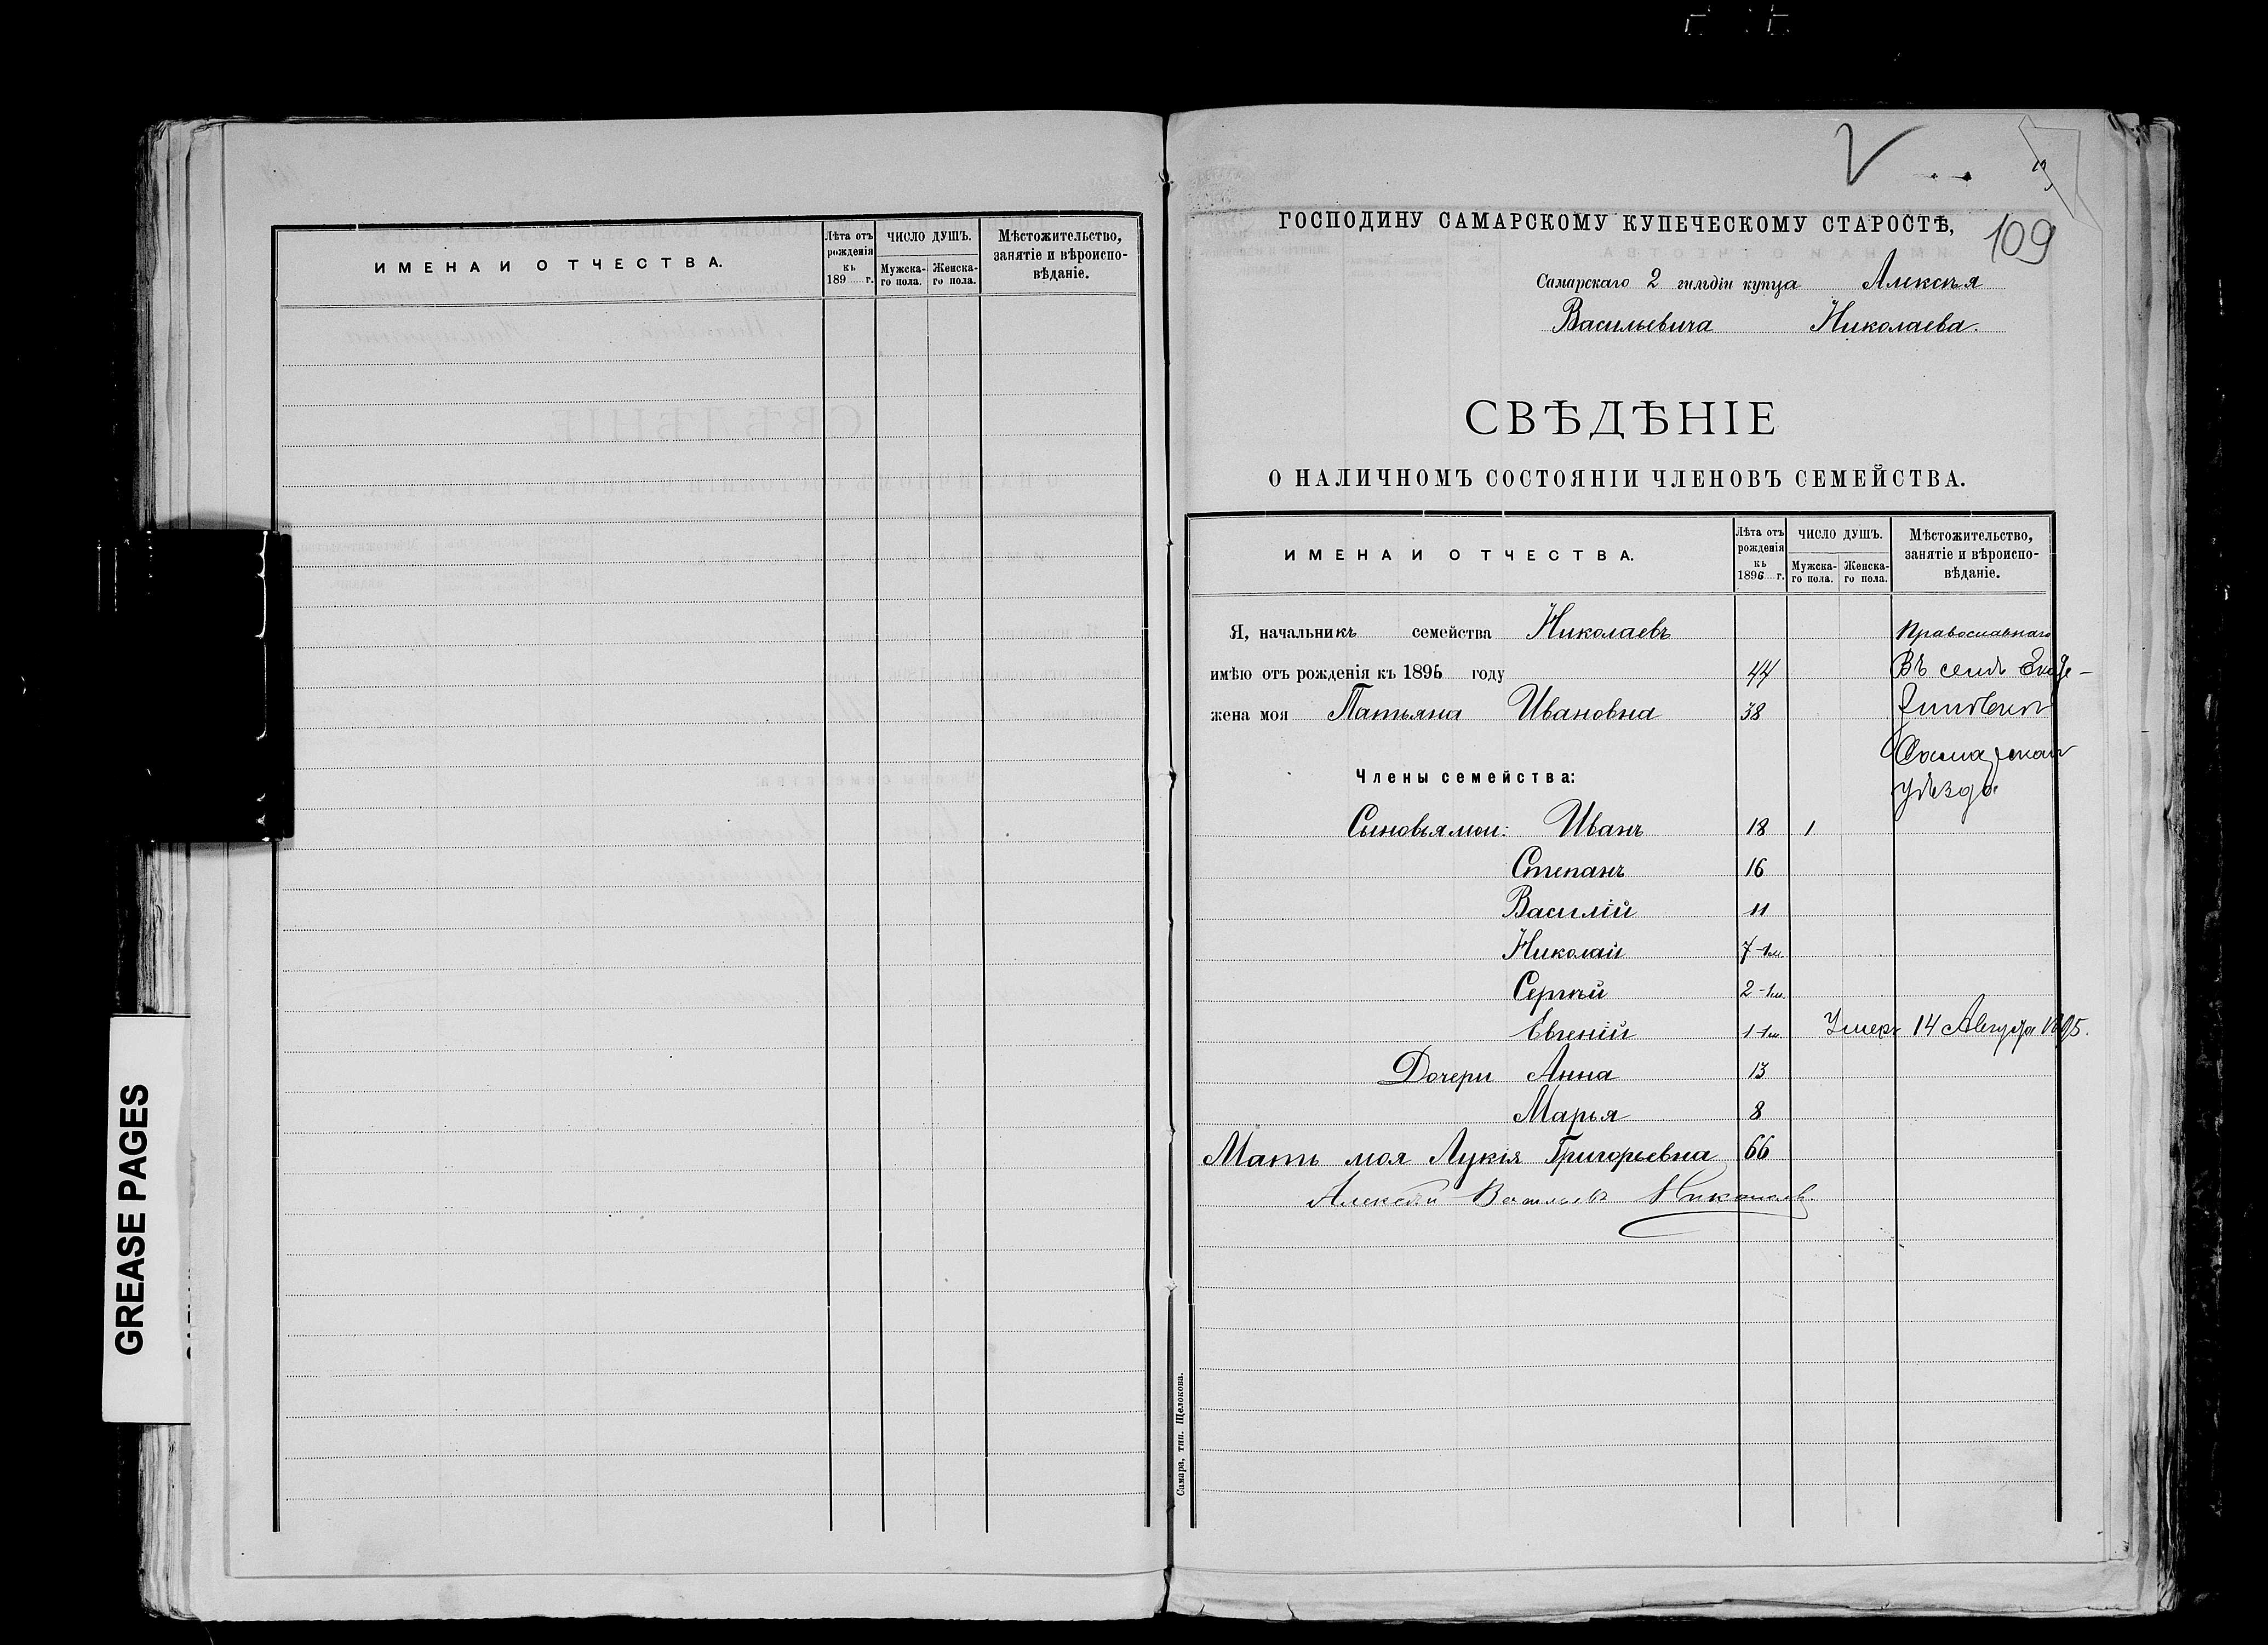 ИМЕНА И ОТЧЕСТВА.
Лѣта отъ рожденія къ 189 г.
ЧИСЛО ДУШЪ.
Мужска-го пола.
Женска-го пола.
Мѣстожительство, занятіе и вѣроиспо-вѣданіе.
GREASE PAGES
109
ГОСПОДИНУ САМАРСКОМУ КУПЕЧЕСКОМУ СТАРОСТѢ,
Самарскаго 2 гильдіи купца Алексѣя
Васильевича Николаева.
СВѢДѢНІЕ
О НАЛИЧНОМЪ СОСТОЯНІИ ЧЛЕНОВЪ СЕМЕЙСТВА.
ИМЕНА И ОТЧЕСТВА.
Лѣта отъ рожденія къ 1896 г.
ЧИСЛО ДУШЪ.
Мужска-го пола.
Женска-го пола.
Мѣстожительство, занятіе и вѣроиспо-вѣданіе.
Я, начальникъ семейства Николаевъ Православнаго
имѣю отъ рожденія къ 1896 году 44 Въ селѣ
жена моя Татьяна Ивановна 38
Самарскаго
Члены семейства: уѣзда
Сыновья мои: Иванъ 18 1
Степанъ 16
Василій 11
Николай 7-1м.
Сергѣй 2-1м.
Евгеній 1-1м. Умеръ 14 Августа 1895.
Дочери Анна 13
Марья 8
Мать моя Лукія Григорьевна 66
Алексѣй Васильевъ Николаевъ.
Самара, тип. Щелокова.